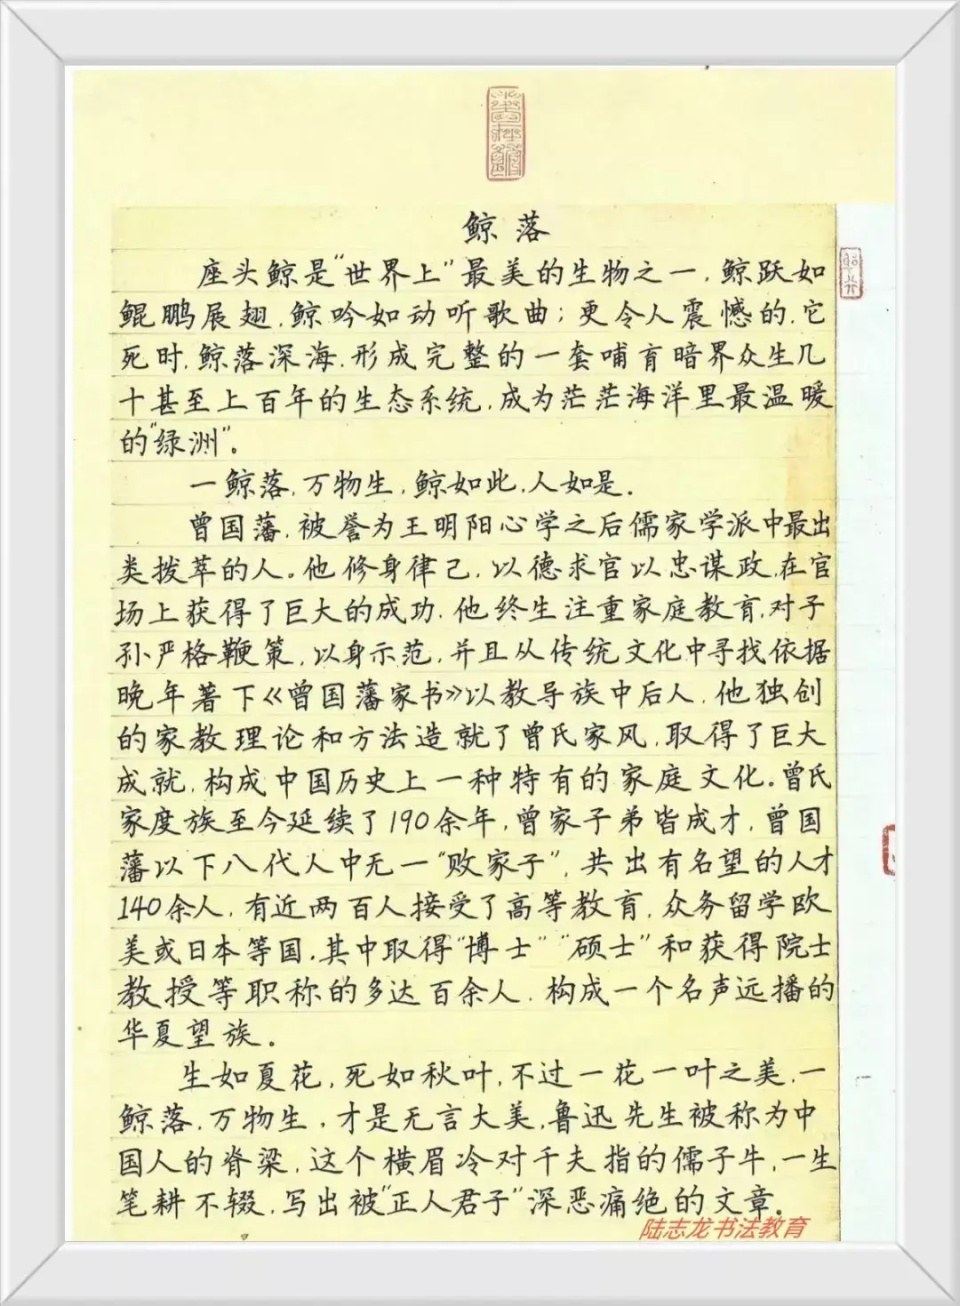 鲸落
座头鲸是"世界上"最美的生物之一,鲸跃如
鲲鹏展翅,鲸吟如动听歌曲;更令人震憾的,它
死时,鲸落深海,形成完整的一套哺育暗界众生几
十甚至上百年的生态系统,成为茫茫海洋里最温暖
的"绿洲"。
一鲸落,万物生,鲸如此,人如是.
曾国藩,被誉为王明阳心学之后儒家学派中最出
类拨萃的人。他修身律己,以德求官以忠谋政,在官
场上获得了巨大的成功,他终生注重家庭教育,对子
孙严格鞭策,以身示范,并且从传统文化中寻找依据
晚年著下《曾国藩家书》以教导族中后人,他独创
的家教理论和方法造就了曾氏家风,取得了巨大
成就,构成中国历史上一种特有的家庭文化。曾氏
家度族至今延续了190余年,曾家子弟皆成才,曾国
藩以下八代人中无一"败家子",共出有名望的人才
140余人,有近两百人接受了高等教育,众务留学欧
美或日本等国,其中取得"博士""硕士"和获得院士
教授等职称的多达百余人,构成一个名声远播的
华夏望族。
生如夏花,死如秋叶,不过一花一叶之美,一
鲸落,万物生,才是无言大美,鲁迅先生被称为中
国人的脊梁,这个横眉冷对千夫指的儒子牛,一生
笔耕不辍,写出被"正人君子"深恶痛绝的文章。
陆志龙书法教育